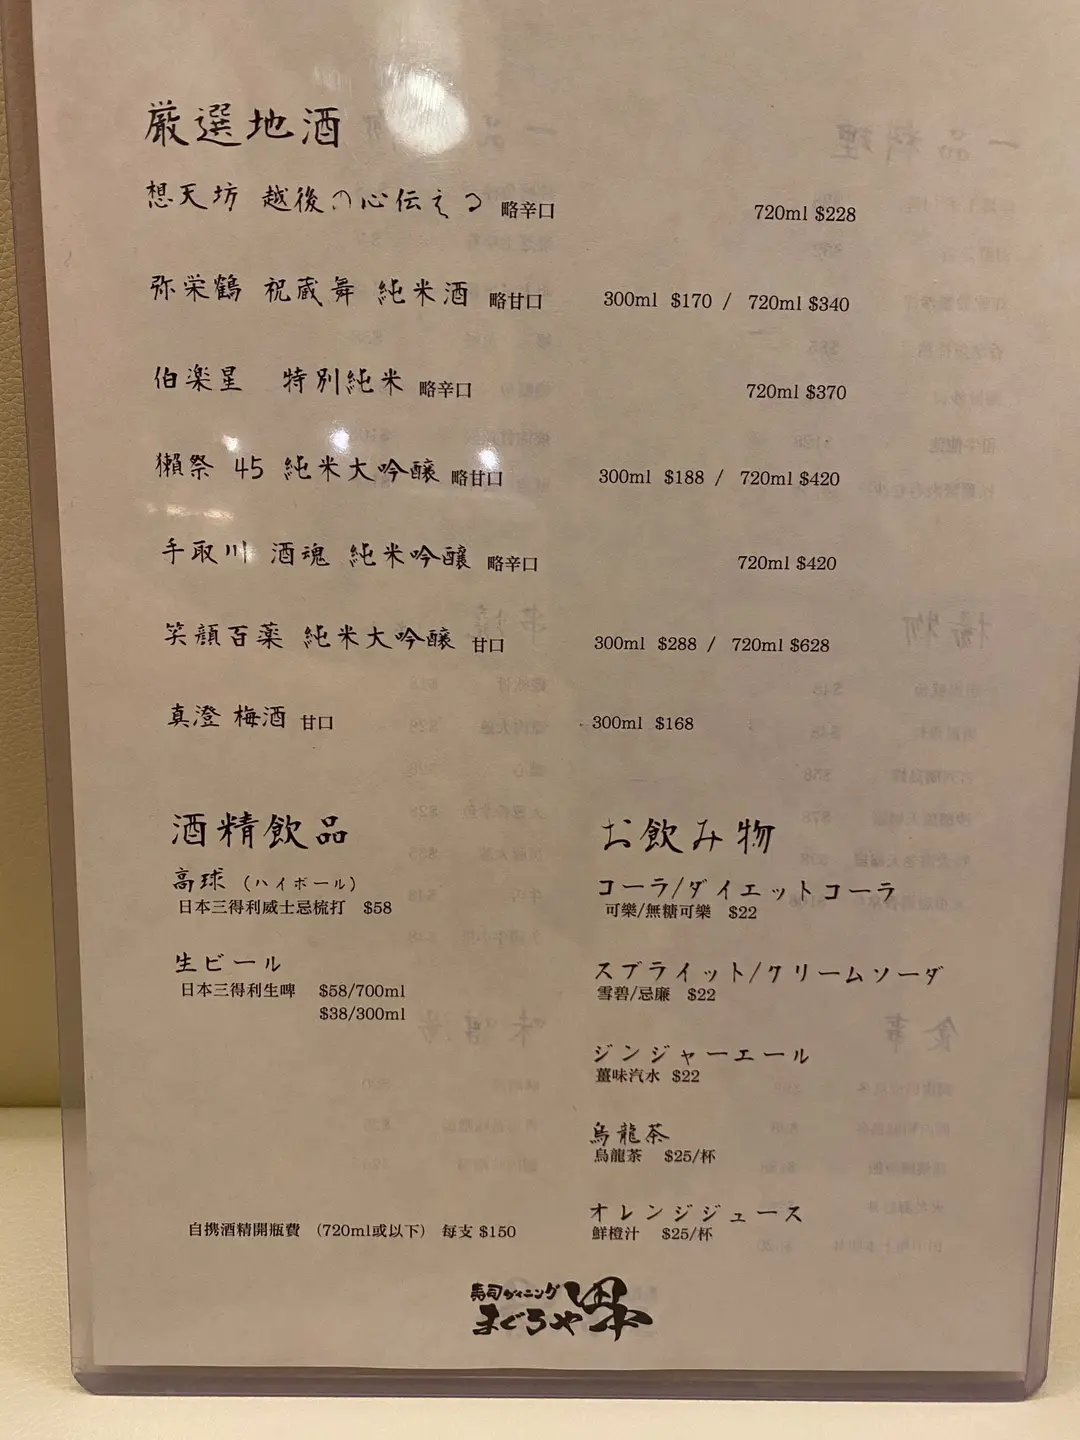 厳選地酒
想天坊 越後の心伝える 略辛口 720ml $228
弥栄鶴 祝蔵舞 純米酒 略甘口 300ml $170 / 720ml $340
伯楽星 特別純米 略辛口 720ml $370
獺祭 45 純米大吟醸 略甘口 300ml $188 / 720ml $420
手取川 酒魂 純米吟醸 略辛口 720ml $420
笑顔百薬 純米大吟醸 甘口 300ml $288 / 720ml $628
真澄 梅酒 甘口 300ml $168
酒精飲品
高球 (ハイボール)
日本三得利威士忌梳打 $58
生ビール
日本三得利生啤 $58/700ml
$38/300ml
お飲み物
コーラ/ダイエットコーラ
可樂/無糖可樂 $22
スプライット/クリームソーダ
雪碧/忌廉 $22
ジンジャーエール
薑味汽水 $22
烏龍茶
烏龍茶 $25/杯
オレンジジュース
鮮橙汁 $25/杯
自携酒精開瓶費 (720ml或以下) 每支 $150
寿司ダイニング
まぐろや